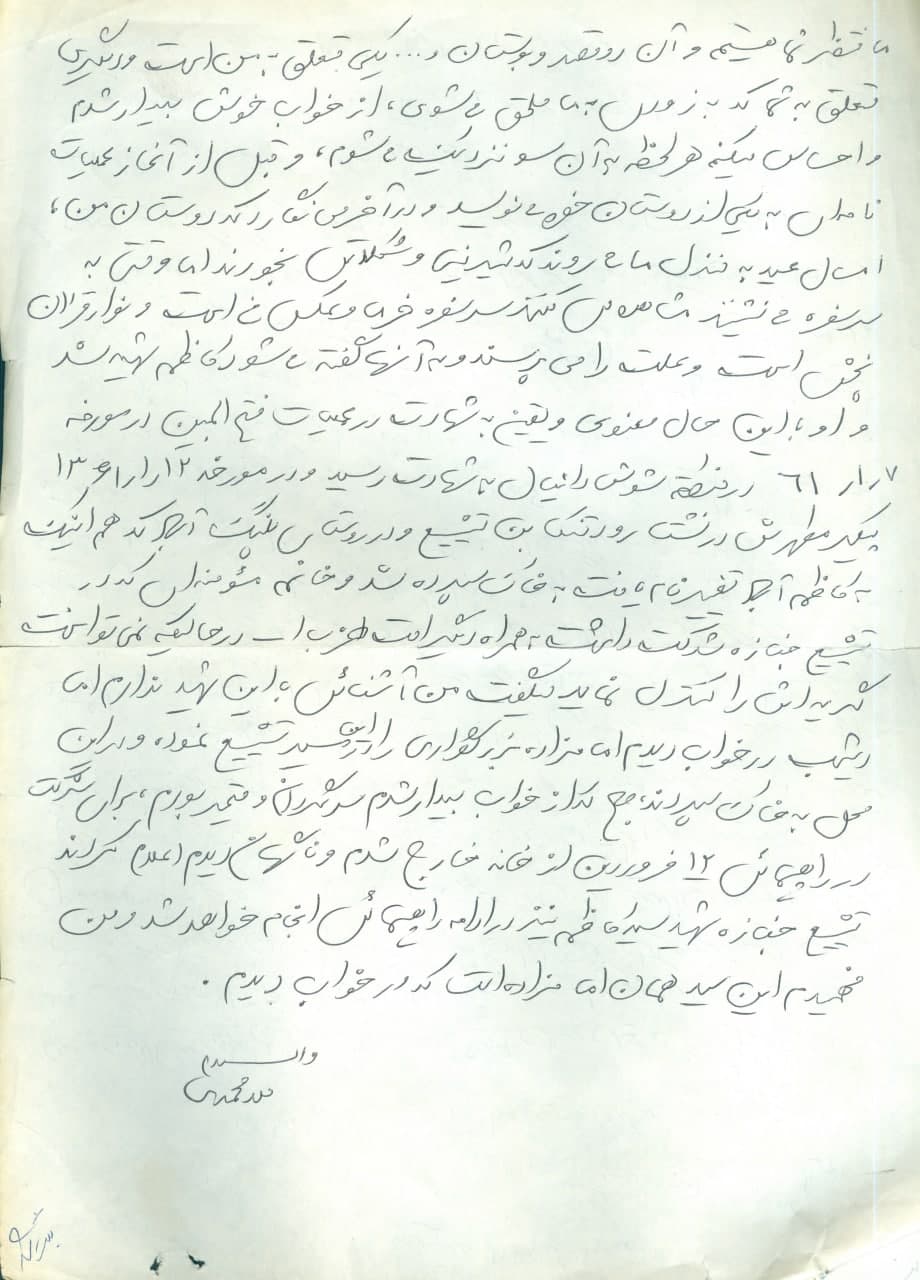 ما منتظر شما هستیم و آن دو قصر و بوستان و... یکی متعلق به من است و دیگری
متعلق به شما که به زودی به ما ملحق می شوی، از خواب خوش بیدار شدم
و احساس میکنم هر لحظه به آن سو نزدیک می شوم، و قبل از آغاز عملیات
نامه ای به یکی از دوستان خود می نویسد و در آخر می نگارد که دوستان من،
امسال عید به منزل ما می روند که شیرینی و شکلاتی بخورند اما وقتی به
سر سفره می نشینند مشاهده می کنند سر سفره خرما و عکس من است و نوار قرآن
پخش است و علت را می پرسند و به آنها گفته می شود کاظم شهید شد
و او با این حال معنوی و یقین به شهادت در عملیات فتح المبین در مورخه
۷ر۱ر ۶۱ در منطقه شوش دانیال به شهادت رسید و در مورخه ۱۲ر۱ر۱۳۶۱
پیکر مطهرش در نشتارود تنکابن تشییع و در روستای پلنگ آبجا که هم اینک
به کاظم آبجا تغییر نام یافت به خاک سپرده شد و خانم مؤمنه ای که در
تشییع جنازه شرکت داشت به همراه دیگر امت حزب ا... در حالیکه نمی توانست
گریه اش را کنترل نماید میگفت من آشنائی با این شهید ندارم اما
دیشب در خواب دیدم امامزاده بزرگواری را از این مسیر تشییع نموده و در این
محل به خاک سپردند، صبح که از خواب بیدار شدم سرگردان و متحیر بودم، برای شرکت
در راهپیمائی ۱۲ فروردین از خانه خارج شدم و ناگهان دیدم اعلام کردند
تشییع جنازه شهید سید کاظم نیز در ادامه راهپیمائی انجام خواهد شد و من
فهمیدم این سید همان امامزاده است که در خواب دیدم .
والسلام